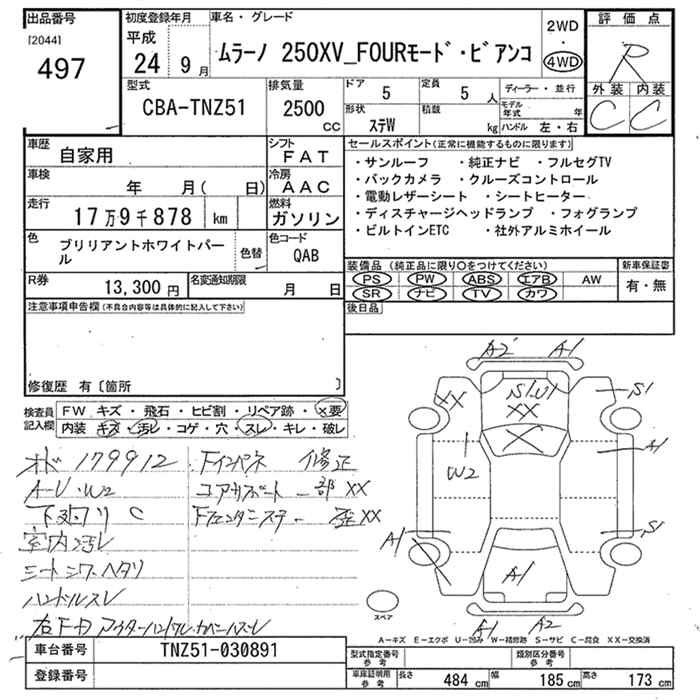 出品番号
[2044]
497
初度登録年月
平成
24 9月
車名・グレード
ムラーノ 250XV_FOURモード・ビアンコ
2WD
・
4WD
評価点
R
外装 内装
C C
型式
CBA-TNZ51
排気量
2500
CC
ドア 5
定員 5人
形状 ステW
積載 kg
ディーラー・並行
モデル年式 年
ハンドル 左・右
車歴 自家用
シフト FAT
車検 年 月( 日)
冷房 AAC
走行 17万9千878 km
燃料 ガソリン
色 ブリリアントホワイトパール
色替
色コード QAB
R券 13,300円
名変通知期限 月 日
セールスポイント(正常に機能するものに限ります)
・サンルーフ ・純正ナビ ・フルセグTV
・バックカメラ ・クルーズコントロール
・電動レザーシート ・シートヒーター
・ディスチャージヘッドランプ ・フォグランプ
・ビルトインETC ・社外アルミホイール
装備品(純正品に限り○をつけてください)
PS PW ABS エアB AW
SR ナビ TV カワ
新車保証書
有・無
後日品
注意事項申告欄(不具合内容等は具体的に記入して下さい)
修復歴 有〔箇所 〕
検査員記入欄
FW キズ・飛石・ヒビ割・リペア跡・×要
内装 キズ・汚レ・コゲ・穴・スレ・キレ・破レ
179912 Fインパネ 修正
A-U・W2 コアサポート一部XX
下廻り C Fフェンダ
室内汚レ
シートシワ・ヘタリ
ハンドルスレ
A2 A1
XX S1U1 S1
XX
X
W2 A1
A1 S1
A1
A1 A2
スペア
A-キズ E-エクボ U-凹み W-補修跡 S-サビ C-腐食 XX-交換済
車台番号 TNZ51-030891
登録番号
型式指定番号 参考
類別区分番号 参考
車庫証明用 参考
長さ 484 cm 幅 185 cm 高さ 173 cm